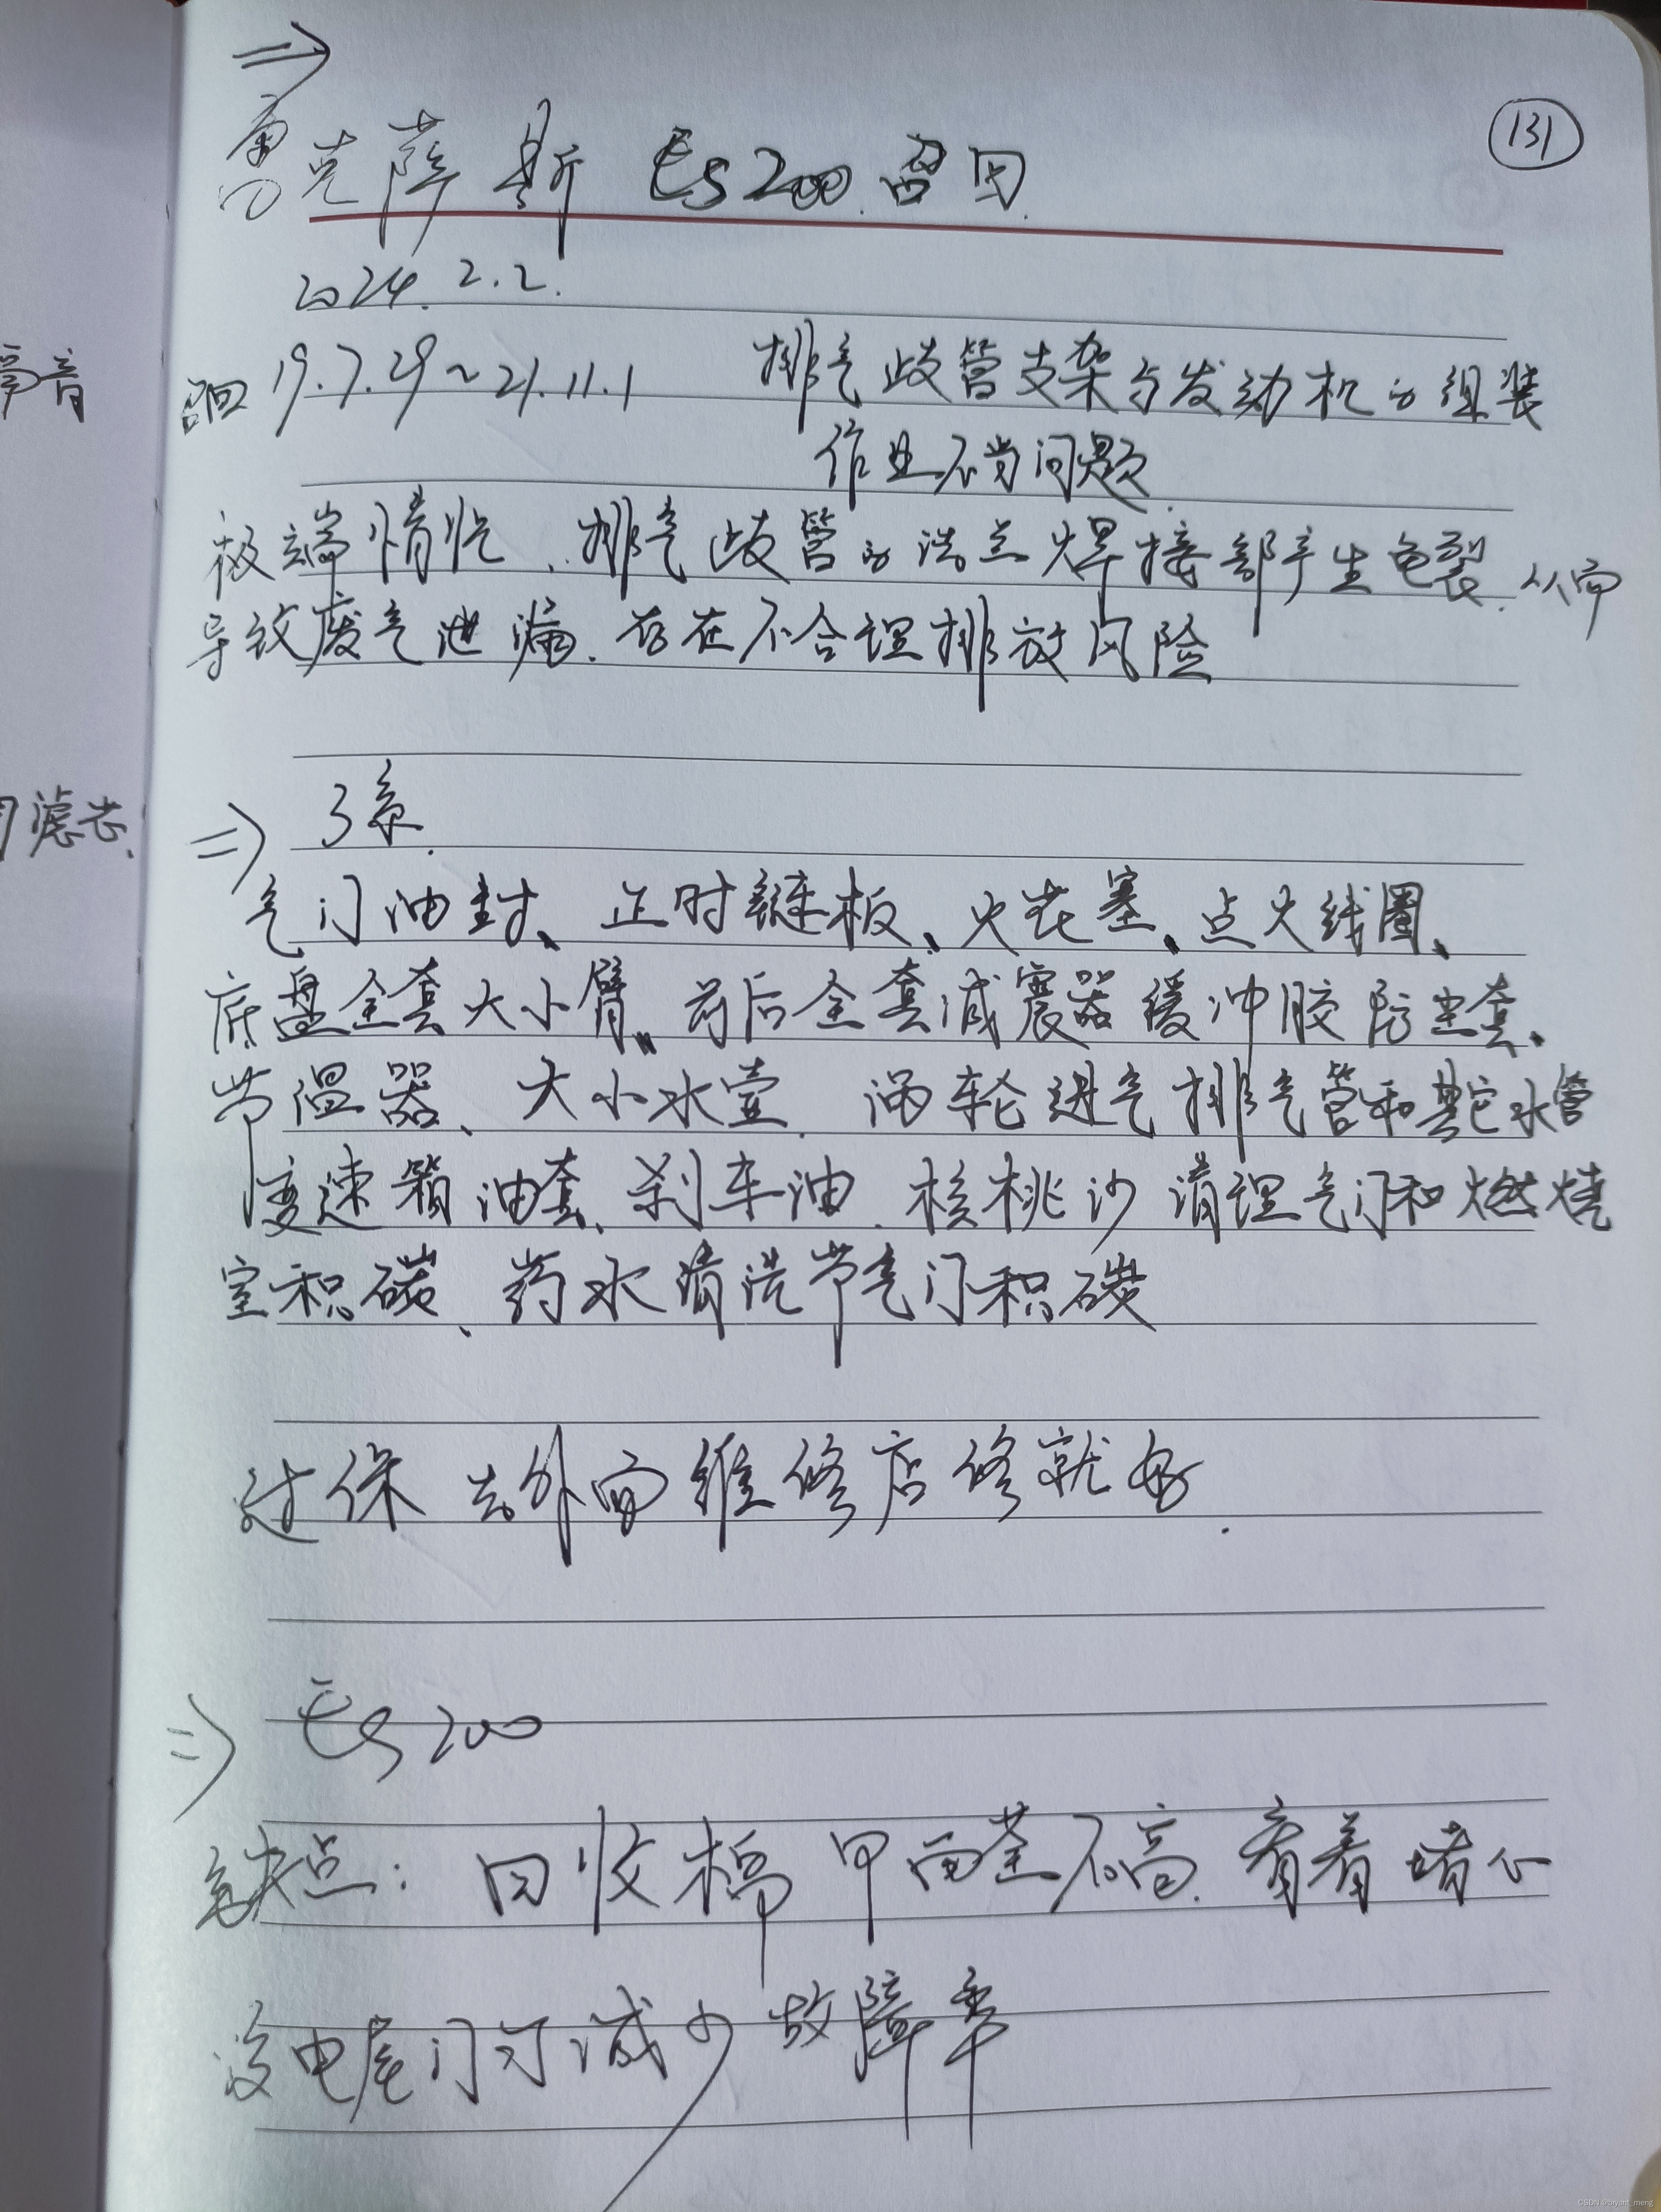 ⇒
131
雷克萨斯 ES200 召回
2024.2.2.
召回 19.7.29~21.11.1 排气歧管支架与发动机的组装
作业不当问题
极端情况,排气歧管的法兰焊接部产生龟裂,从而
导致废气泄漏.存在不合理排放风险
音
滤芯、
⇒ 3系.
气门油封、正时链板、火花塞、点火线圈、
底盘全套大小臂、前后全套减震器缓冲胶防尘套、
节温器、大小水壶、涡轮进气排气管和其它水管
变速箱油套、刹车油、核桃沙清理气门和燃烧
室积碳、药水清洗节气门积碳
过保 去外面维修店修就好.
⇒ ES200
缺点: 回收 甲 不高.看着堵心
没电尾门 减少故障率
CSDN @bryant_meng